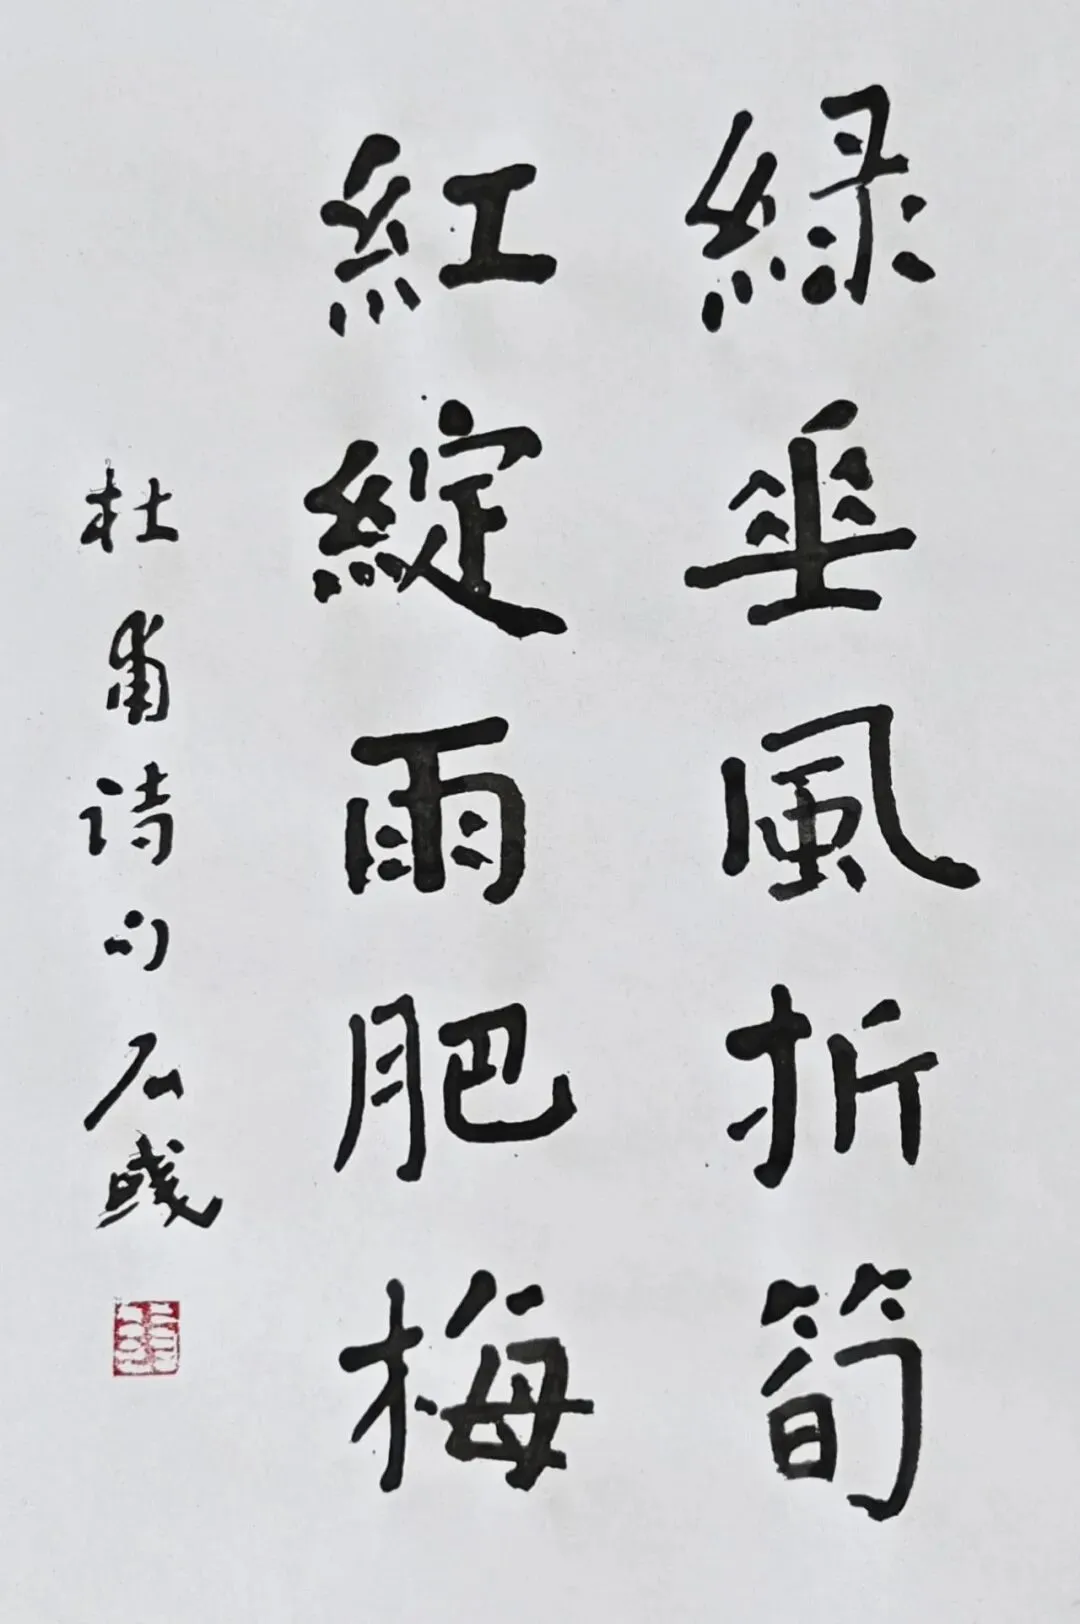 綠垂風折筍
紅綻雨肥梅
杜甫诗句石